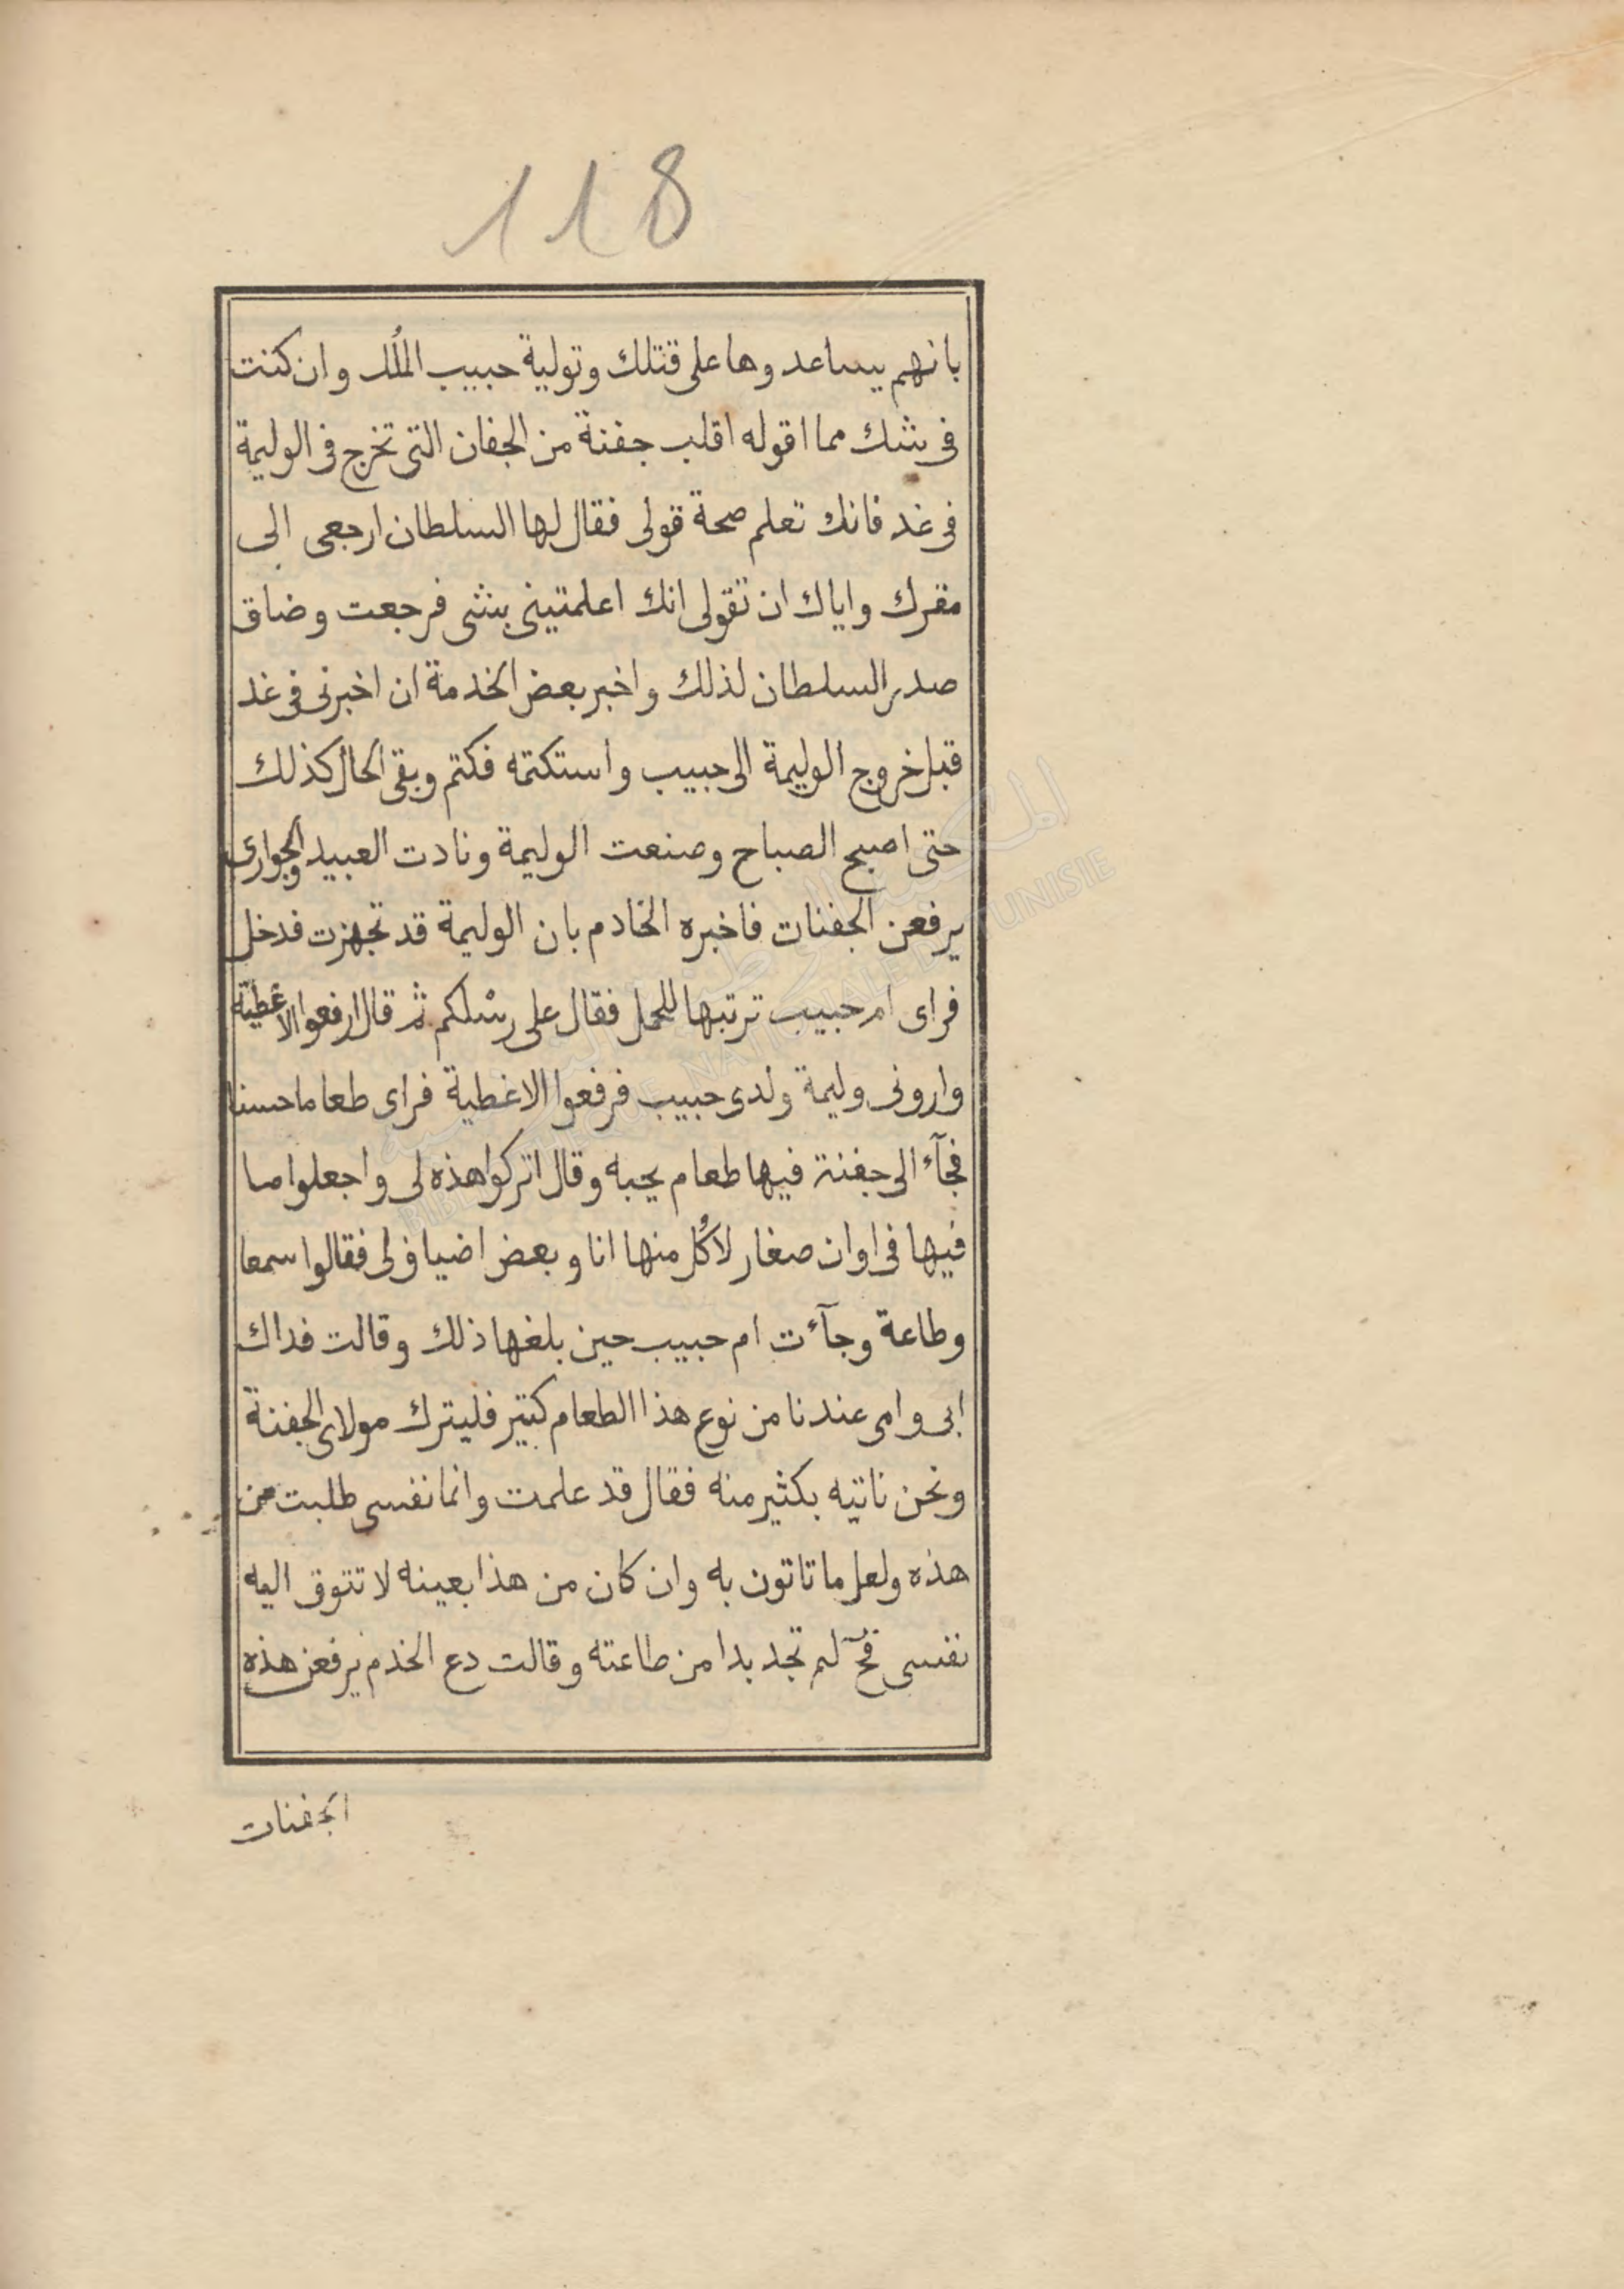 118
بانهم يساعدوها على قتلك وتولية حبيب المُلك وان كنت
فى شك مما اقوله اقلب جفنة من الجفان التى تخرج فى الوليمة
فى غد فانك تعلم صحة قولى فقال لها السلطان ارجعى الى
مقرك واياك ان تقولى انك اعلمتينى بشى فرجعت وضاق
صدر السلطان لذلك واخبر بعض الخدمة ان اخبرنى فى غد
قبل خروج الوليمة الى حبيب واستكتمه فكتم وبقى الحال كذلك
حتى اصبح الصباح وصنعت الوليمة ونادت العبيد والجوارى
يرفعن الجفنات فاخبره الخادم بان الوليمة قد تجهزت فدخل
فراى ام حبيب ترتبها للحمل فقال على رسْلكم ثم قال ارفعوا الاغطية
وارونى وليمة ولدى حبيب فرفعوا الاغطية فراى طعاما حسنا
فجآء الى جفنة فيها طعام يحبه وقال اتركوا هذه لى واجعلوا ما
فيها فى اوان صغار لاكُل منها انا وبعض اضيافى لى فقالوا سمعا
وطاعة وجآءت ام حبيب حين بلغها ذلك وقالت فداك
ابى وامى عندنا من نوع هذا الطعام كتير فليترك مولاى الجفنة
ونحن ناتيه بكثير منه فقال قد علمت وانما نفسى طلبت من
هذه ولعل ما تاتون به وان كان من هذا بعينه لا تتوق اليه
نفسى فحٓ لم تجد بدا من طاعته وقالت دع الخدم يرفعن هذه
الجفنات
المكتبة الوطنية التونسية
BIBLIOTHEQUE NATIONALE DE TUNISIE